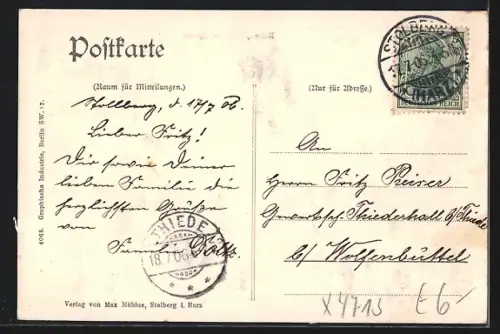 Postkarte
(Raum für Mitteilungen.)
(Nur für Adresse.)
Stollberg, d. 17/7 06.
Lieber Fritz!
Dir sowie Deiner
lieben Familie die
herzlichsten Grüße
von
Familie
An
Herrn Fritz Reiser
Thiederhall b/Thiede
b/ Wolfenbüttel
STOLBERG
17.7.06
(HARZ)
REICH
THIEDE
18.7.06
4048. Graphische Industrie, Berlin SW. 12.
Verlag von Max Möbius, Stolberg i. Harz
X4713
£6-